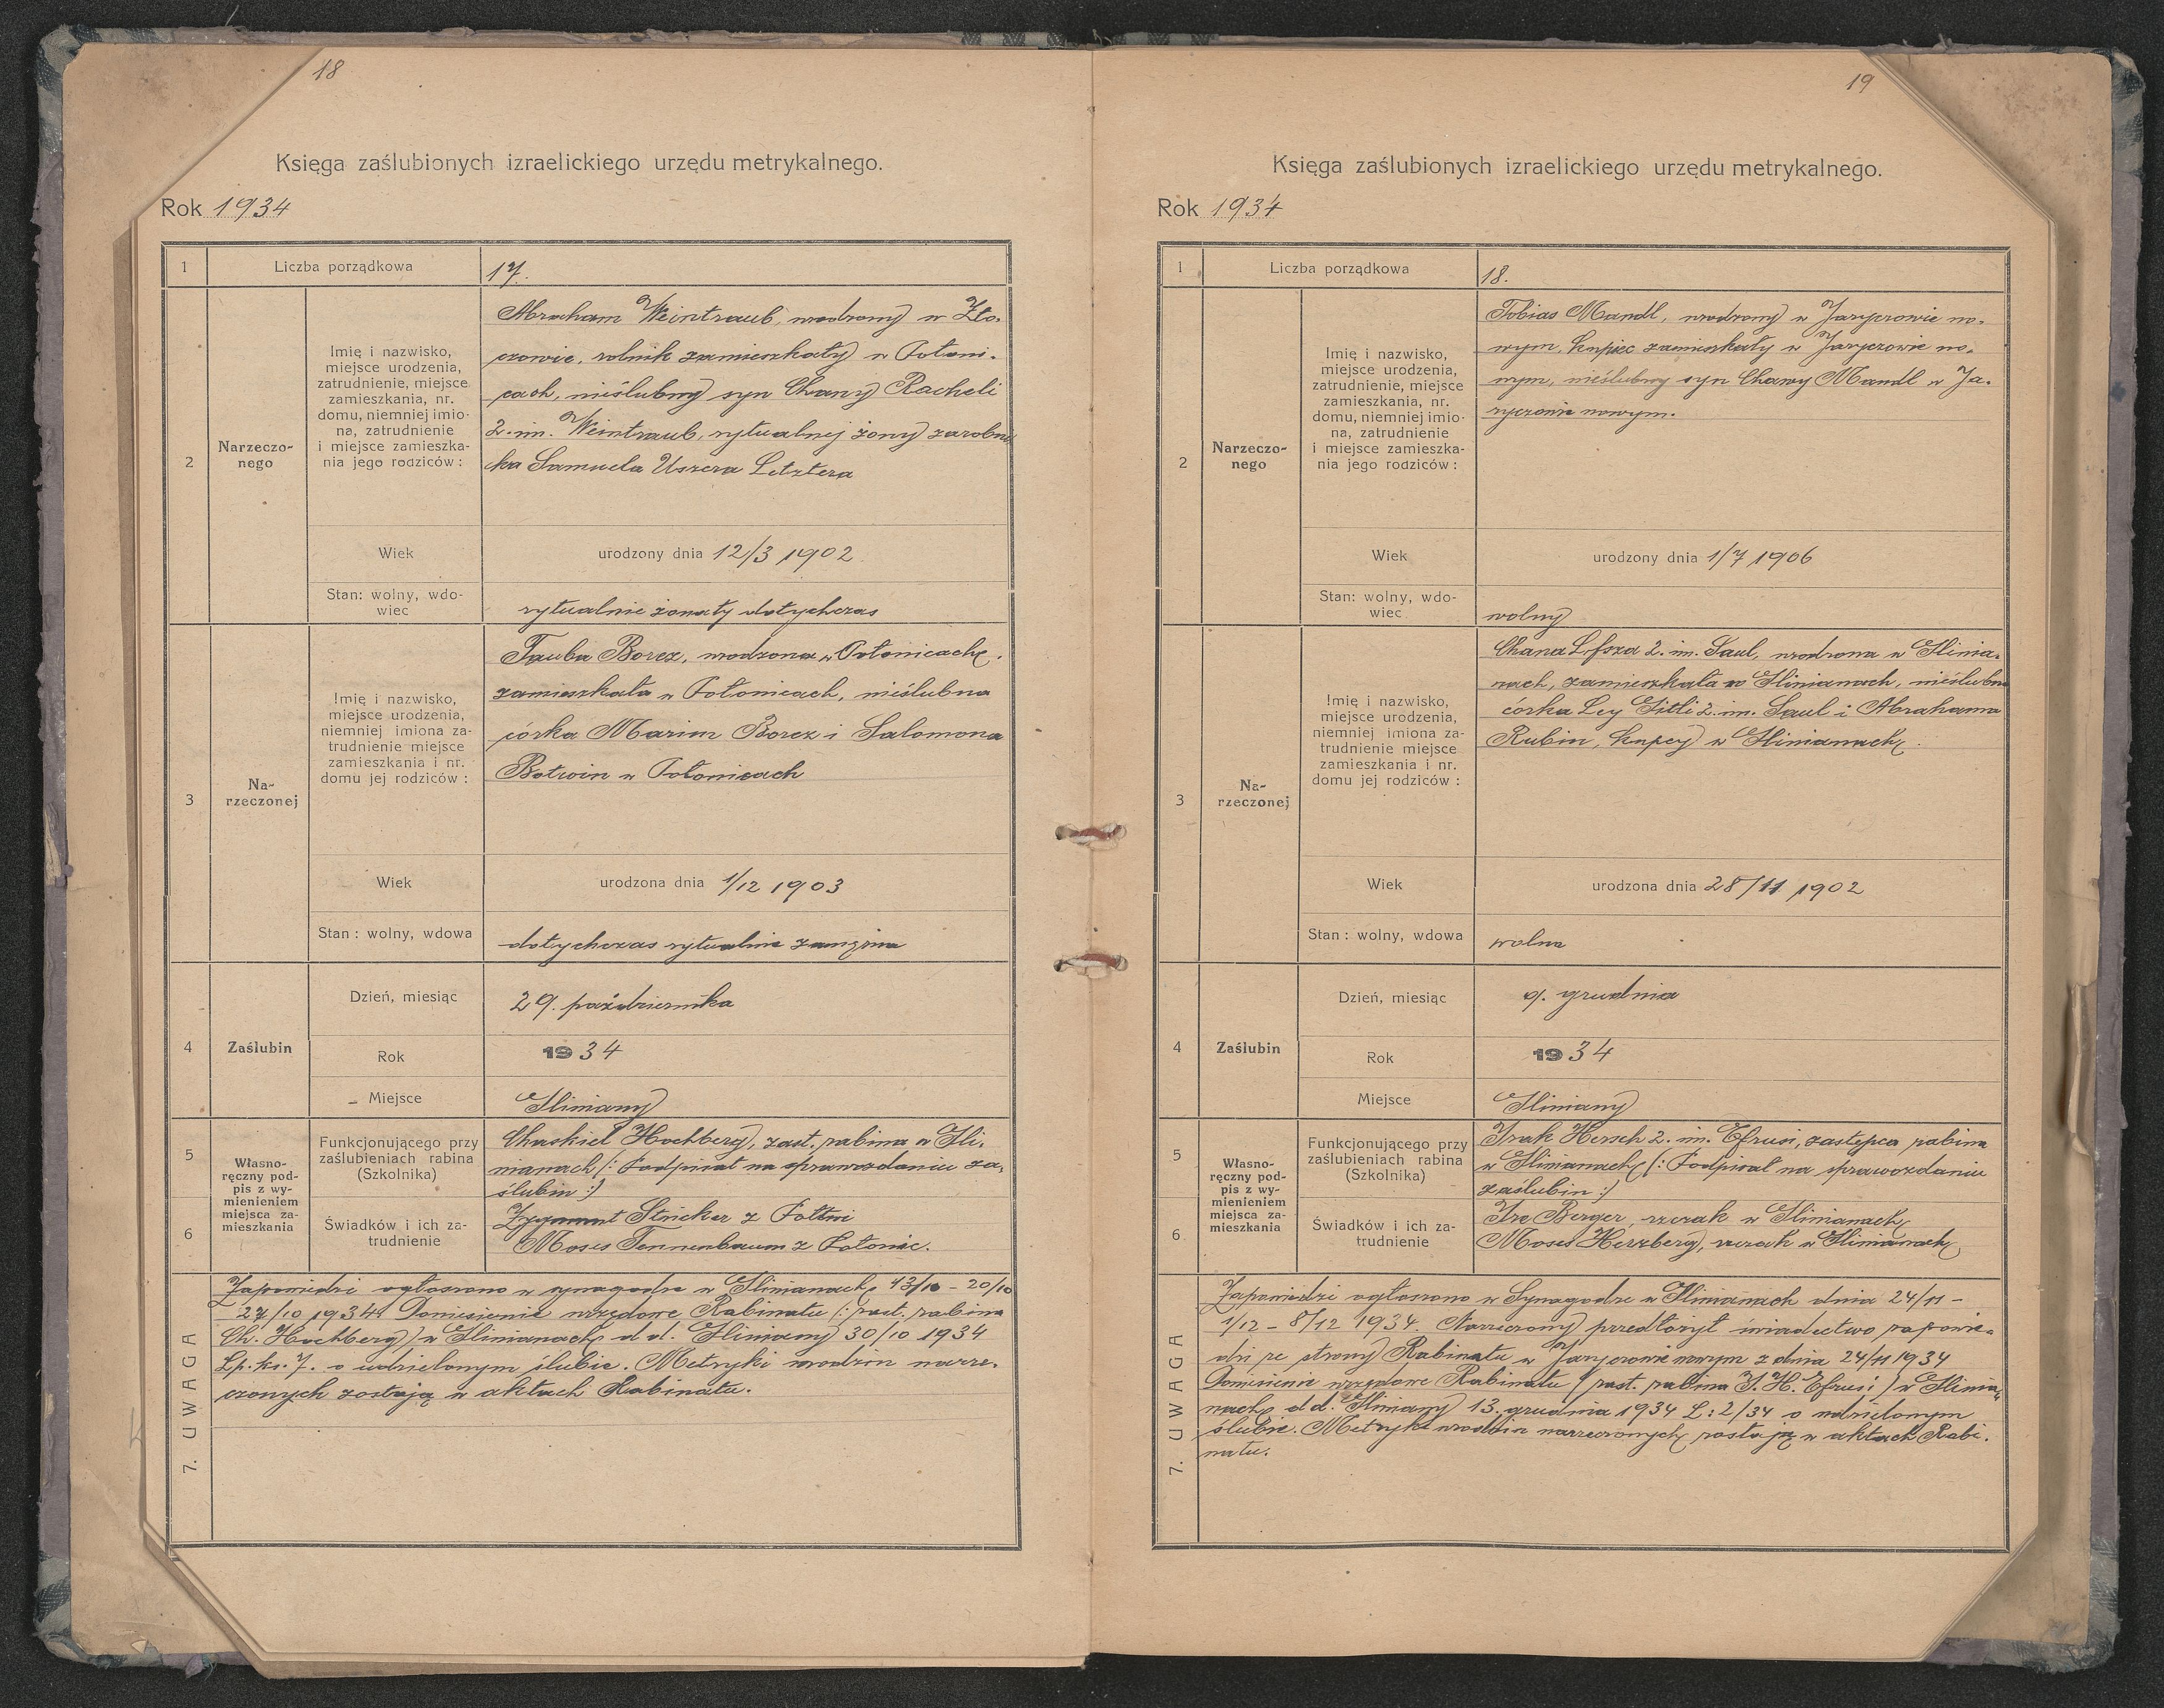 18
Księga zaślubionych izraelickiego urzędu metrykalnego.
Rok 1934
1 Liczba porządkowa 17.
2 Narzeczo-
nego
Imię i nazwisko,
miejsce urodzenia,
zatrudnienie, miejsce
zamieszkania, nr.
domu, niemniej imio-
na, zatrudnienie
i miejsce zamieszka-
nia jego rodziców :
Abraham Weintraub, urodzony w Zło-
czowie, rolnik zamieszkały w Połoni-
cach, nieślubny syn Chany Racheli
2. im. Weintraub, rytualnej żony zarobni
ka Samuela Uszera Letztera
Wiek urodzony dnia 12/3 1902
Stan: wolny, wdo-
wiec
rytualnie żonaty dotychczas
3 Na-
rzeczonej
Imię i nazwisko,
miejsce urodzenia,
niemniej imiona za-
trudnienie miejsce
zamieszkania i nr.
domu jej rodziców :
Tauba Borex, urodzona w Połonicach,
zamieszkała w Połonicach, nieślubna
córka Marim Borex i Salomona
Botwin w Połonicach
Wiek urodzona dnia 1/12 1903
Stan : wolny, wdowa dotychczas rytualnie zamężna
4 Zaślubin
Dzień, miesiąc 29. października
Rok 1934
Miejsce Gliniany
5 Własno-
ręczny pod-
pis z wy-
mienieniem
miejsca za-
mieszkania
Funkcjonującego przy
zaślubieniach rabina
(Szkolnika)
Chaskiel Hochberg, zast. rabina w Gli-
nianach /: Podpisał na sprawozdaniu za-
ślubin :/
6 Świadków i ich za-
trudnienie
Zygmunt Stricker z Połtwi
Moses Tennenbaum z Połonic.
7. UWAGA
Zapowiedzi ogłoszono w synagodze w Glinianach 13/10 - 20/10
27/10 1934. Doniesienie urzędowe Rabinatu (: zast. rabina
Ch. Hochberg) w Glinianach d d. Gliniany 30/10 1934
Lp. ks. 7. o udzielonym ślubie. Metryki urodzin narze-
czonych zostają w aktach Rabinatu.
19
Księga zaślubionych izraelickiego urzędu metrykalnego.
Rok 1934
1 Liczba porządkowa 18.
2 Narzeczo-
nego
Imię i nazwisko,
miejsce urodzenia,
zatrudnienie, miejsce
zamieszkania, nr.
domu, niemniej imio-
na, zatrudnienie
i miejsce zamieszka-
nia jego rodziców :
Tobias Mandl, urodzony w Jaryczowie no-
wym, kupiec zamieszkały w Jaryczowie no-
wym, nieślubny syn Chawy Mandl w Ja-
ryczowie nowym.
Wiek urodzony dnia 1/7 1906
Stan: wolny, wdo-
wiec
wolny
3 Na-
rzeczonej
Imię i nazwisko,
miejsce urodzenia,
niemniej imiona za-
trudnienie miejsce
zamieszkania i nr.
domu jej rodziców :
Chana 2. im. Saul, urodzona w Glinia-
nach, zamieszkała w Glinianach, nieślubna
córka Ley Gitli 2. im. Saul i Abrahama
Rubin, kupcy w Glinianach.
Wiek urodzona dnia 28/11 1902
Stan : wolny, wdowa wolna
4 Zaślubin
Dzień, miesiąc 9. grudnia
Rok 1934
Miejsce Gliniany
5 Własno-
ręczny pod-
pis z wy-
mienieniem
miejsca za-
mieszkania
Funkcjonującego przy
zaślubieniach rabina
(Szkolnika)
Izak Hersch 2. im. Efrusi, zastępca rabina
w Glinianach (: Podpisał na sprawozdaniu
zaślubin :/
6 Świadków i ich za-
trudnienie
Berger, rzezak w Glinianach
Moses Herzberg, rzezak w Glinianach
7. UWAGA
Zapowiedzi ogłoszono w Synagodze w Glinianach dnia 24/11 -
1/12 - 8/12 1934. Narzeczony przedłożył świadectwo zapowie-
dzi ze strony Rabinatu w Jaryczowie nowym z dnia 24/11 1934
Doniesienie urzędowe Rabinatu (zast. rabina I. H. Efrusi) w Glinia-
nach d d. Gliniany 13. grudnia 1934 L: 2/34 o udzielonym
ślubie. Metryki urodzin narzeczonych zostają w aktach Rabi-
natu.